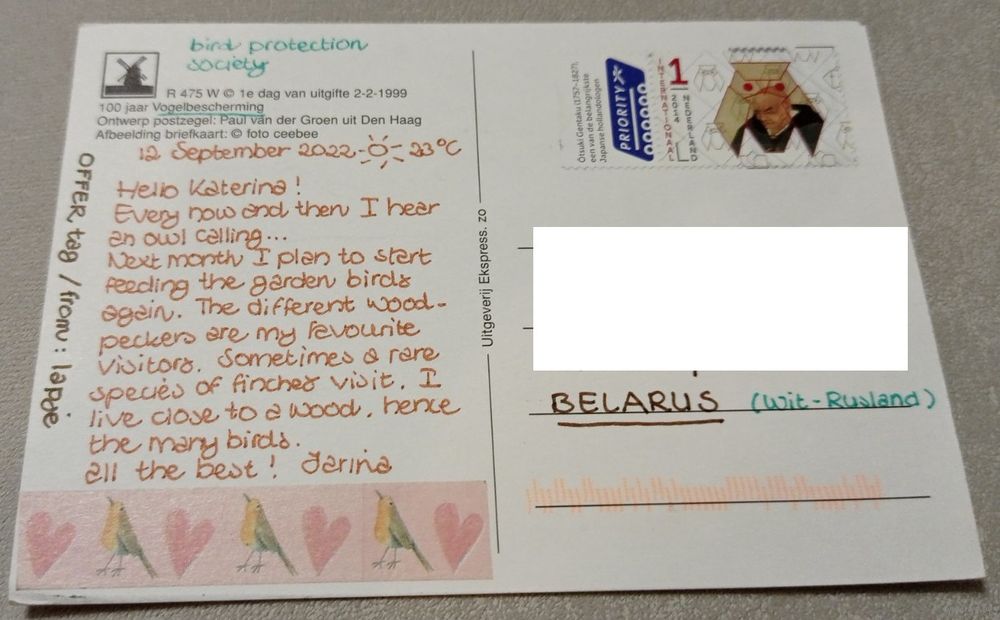 bird protection
society
R 475 W © 1e dag van uitgifte 2-2-1999
100 jaar Vogelbescherming
Ontwerp postzegel: Paul van der Groen uit Den Haag
Afbeelding briefkaart: © foto ceebee
12 September 2022 23°C
Hello Katerina!
Every now and then I hear
an owl calling...
Next month I plan to start
feeding the garden birds
again. The different wood-
peckers are my favourite
visitors. Sometimes a rare
species of finches visit. I
live close to a wood, hence
the many birds.
all the best! Jarina
OFFER tag / from: lapsje
Uitgeverij Ekspress. zo
Ōtsuki Gentaku (1757-1827),
een van de belangrijkste
Japanse hollandologen
PRIORITY
1
INTERNATIONAAL
2014
NEDERLAND
BELARUS (Wit-Rusland)